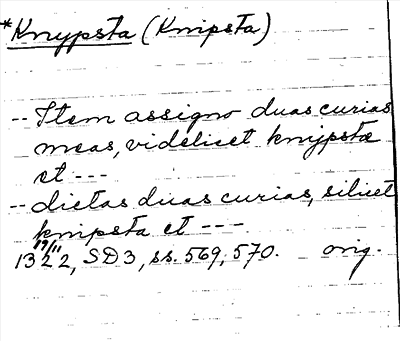 *Knypsta (Knipsta)
-- Item assigno duas curias
meas, videlicet knypstæ
et ---
-- dictas duas curias, silicet
knipsta et ---
19/11
1322, SD3, ss. 569, 570. orig.